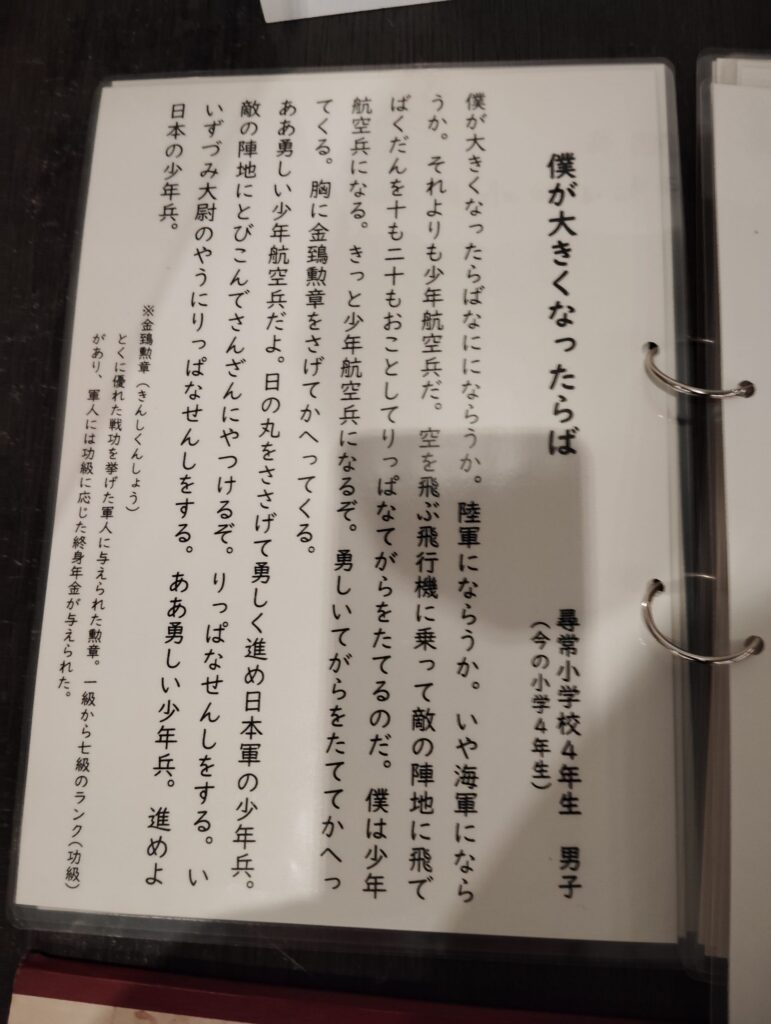 僕が大きくなったらば
尋常小学校4年生 男子
(今の小学4年生)
僕が大きくなったらばなににならうか。陸軍にならうか。いや海軍になら
うか。それよりも少年航空兵だ。空を飛ぶ飛行機に乗って敵の陣地に飛で
ばくだんを十も二十もおことしてりっぱなてがらをたてるのだ。僕は少年
航空兵になる。きっと少年航空兵になるぞ。勇しいてがらをたててかへっ
てくる。胸に金鵄勲章をさげてかへってくる。
ああ勇しい少年航空兵だよ。日の丸をささげて勇しく進め日本軍の少年兵。
敵の陣地にとびこんでさんざんにやつけるぞ。りっぱなせんしをする。い
いずづみ大尉のやうにりっぱなせんしをする。ああ勇しい少年兵。進めよ
日本の少年兵。
※金鵄勲章(きんしくんしょう)
とくに優れた戦功を挙げた軍人に与えられた勲章。一級から七級のランク(功級)
があり、軍人には功級に応じた終身年金が与えられた。